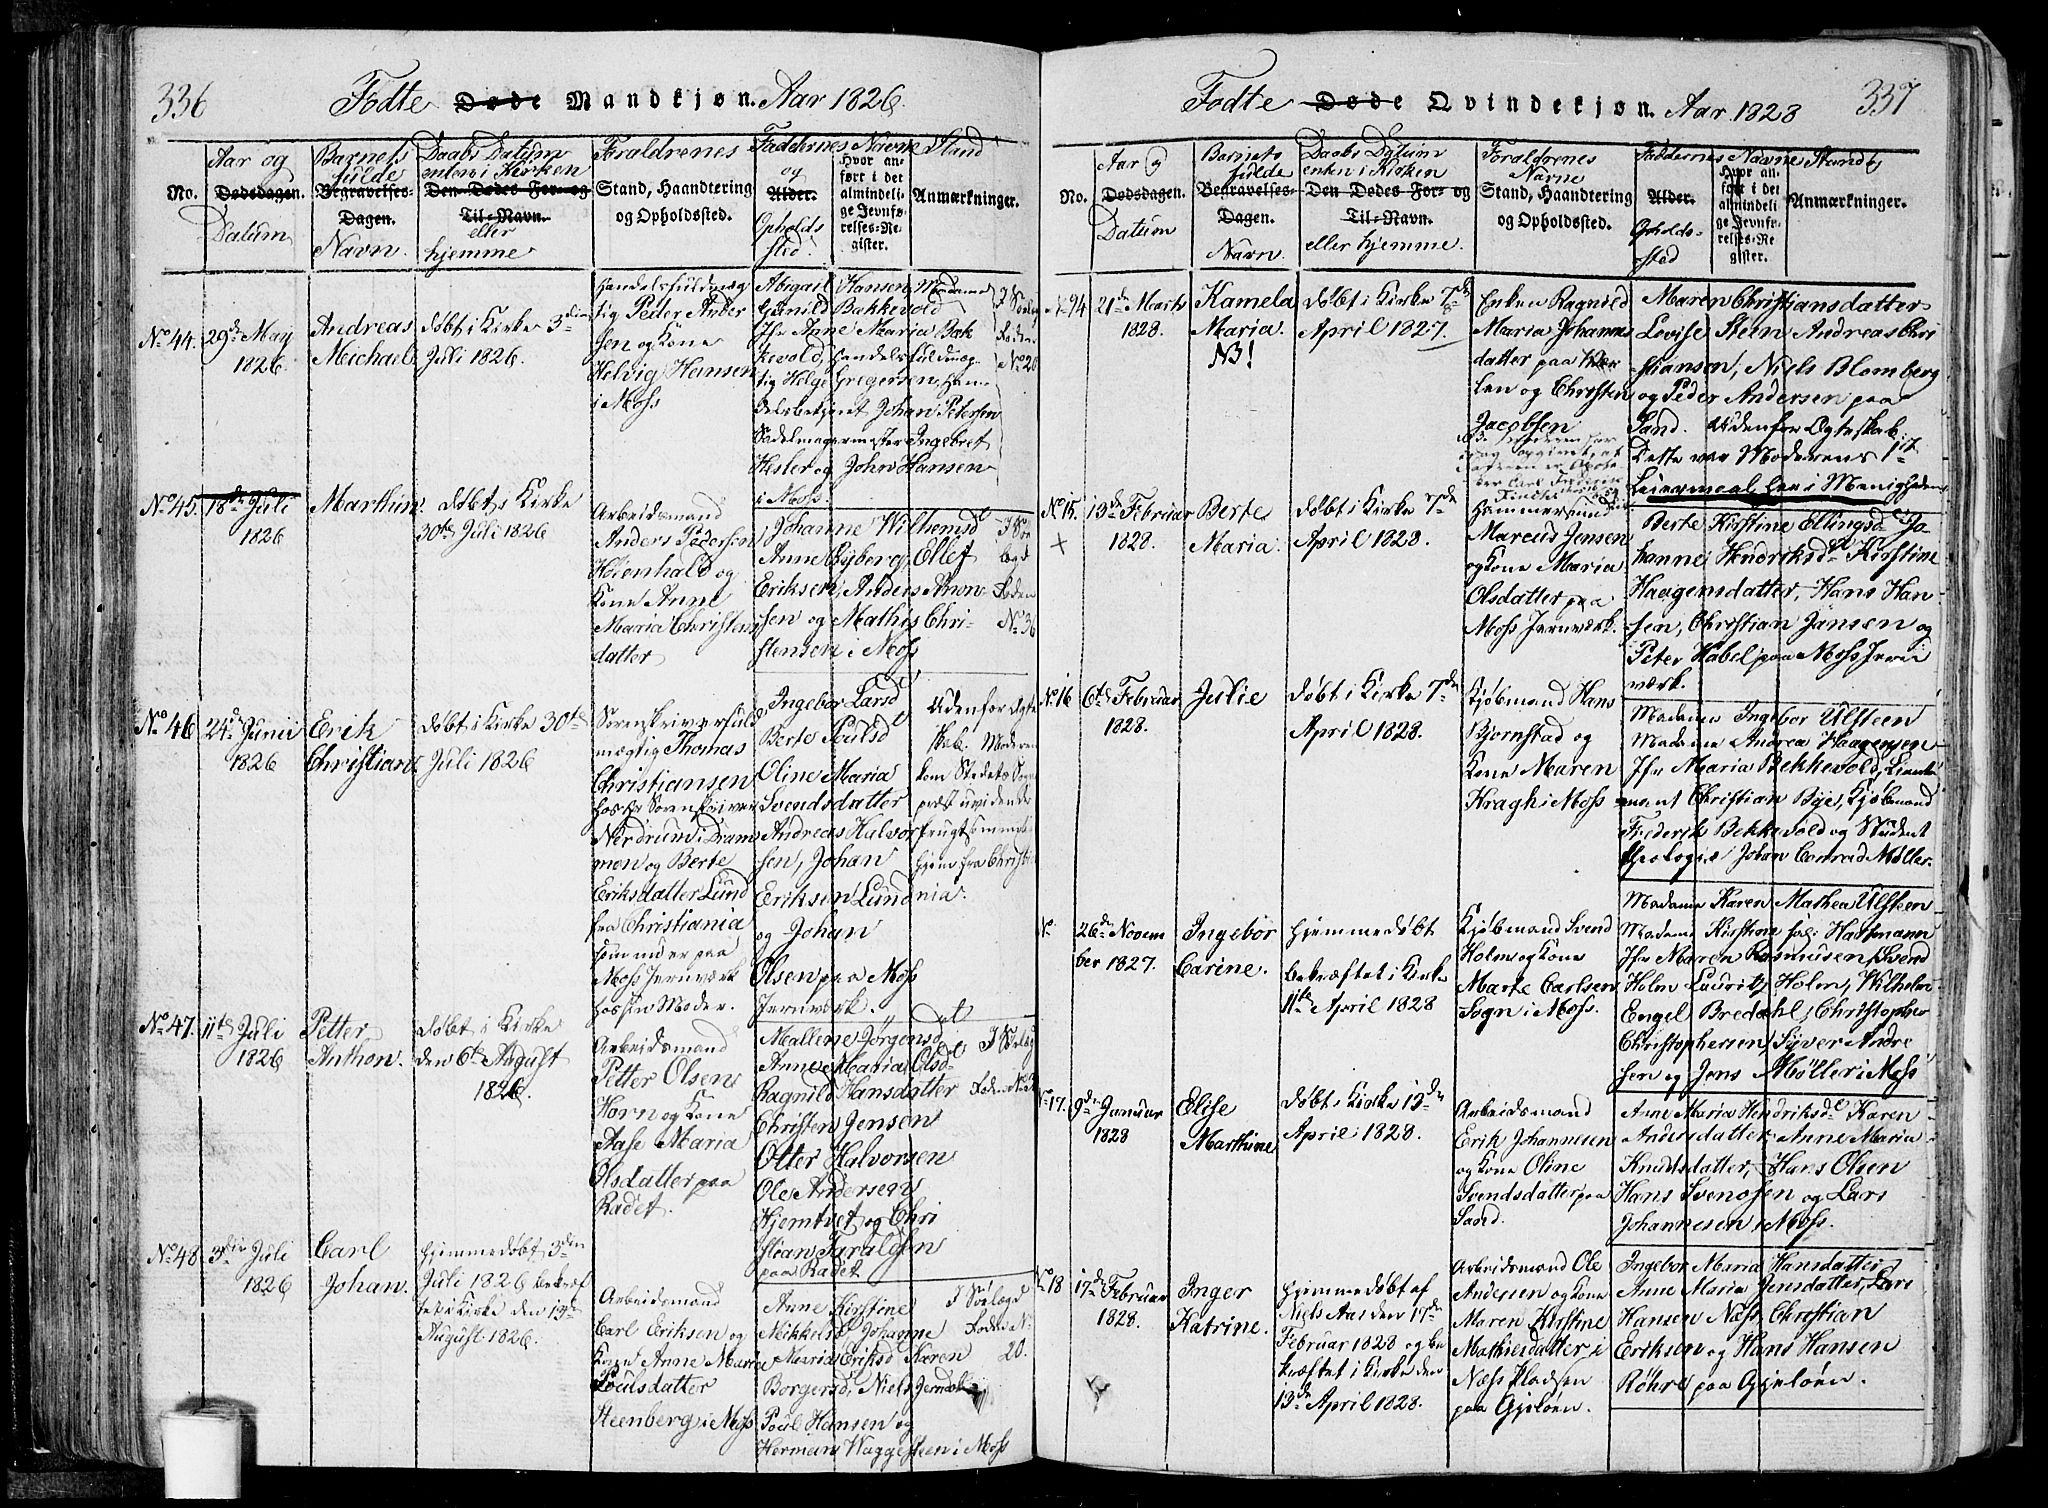 336
Fødte Døde Mandkjøn. Aar 1826.
No.
Aar og
Dødsdagen.
Datum
Barnets
fulde
Begravelses-
Dagen.
Navn.
Daabs Datum
enten i Kirken
Den Dødes For- og
Til-Navn.
eller
hjemme
Forældrenes
Stand, Haandtering
og Opholdssted.
Faddernes Navne Stand
og
Alder.
Opholds
sted.
Hvor an-
ført i det
almindeli-
ge Jevnfø-
relses-Re-
gister.
Anmærkninger.
No 44.
29de May
1826.
Andreas
Michael
døbt i Kirke 3die
Juli 1826.
Handelsfuldmæg
tig Peder Ander
sen og Kone
Helvig Hansen
i Moss
Abigail Hansen, Madame
Gunild Bakkevold
Jfr Anne Maria Bak
kevold, Handelsfuldmæg
tig Helge Gregersen, Han-
delsbetjent Johan Petersen
Sadelmagermester Ingebret
Hesler og John Hansen
i Moss.
No 45.
18de Juli
1826
Marthin.
døbt i Kirke
30te Juli 1826
Arbeidsmand
Anders Pedersen
Høienhald og
Kone Anne
Maria Christens
datter
Johanne Wilhemsd
Anne Ryberg Ellef
Eriksen, Anders Aron-
sen og Mathis Chri-
stensen i Moss
No 36
No 46
24de Junii
1826
Erik
Christian.
døbt i Kirke 30te
Juli 1826
Sorenskriverfuld
mægtig Thomas
Christiansen
hos Hr Sorenskriver
Nerdrum i Dram
men og Berte
Eriksdatter Lund
fra Christiania
som nu er paa
Moss Jernværk
hos sin Moder.
Ingebor Larsd
Berte Poulsd
Oline Maria
Svendsdatter
Andreas Halvor
sen, Johan
Eriksen Lund
og Johan
Olsen paa Moss
Jernværk.
Udenfor Ægte
skab. Moderen
kom Stedets Sogne
præst uvidende
frugtsommelig
hjem fra Christia
nia.
No 47.
11te Juli
1826
Petter
Anthon.
døbt i Kirke
den 6te August
1826.
Arbeidsmand
Petter Olsen
Horn og Kone
Aase Maria
Olsdatter paa
Radet.
Mallene Jørgensd
Anne Maria Olsd
Ragnild Hansdatter
Christen Jensen
Otter Halvorsen
Ole Andersen
Hjemtvet og Chri
stian Taraldsen
paa Radet
No 48.
3die Juli
1826
Carl
Johan.
hjemmedøbt 3den
Juli 1826 bekræf
tet i Kirke den 13de
August 1826.
Arbeidsmand
Carl Eriksen og
Kone Anne Maria
Poulsdatter
Steenberg i Moss
Anne Kirstine
Mikkelsd Johanne
Maria Eriksd Karen
Borgersd, Niels
Poul Hansen og
Herman Waggesteen i Moss
20.
337
Fødte Døde Qvindekjøn. Aar 1828
No.
Aar og
Dødsdagen.
Datum
Barnets
fulde
Begravelses-
Dagen.
Navn.
Daabs Datum
enten i Kirken
Den Dødes For- og
Til-Navn.
eller hjemme.
Forældrenes
Navne
Stand, Haandtering
og Opholdssted.
Faddernes Navne Stand og
Alder.
Opholds-
sted
Hvor an-
ført i det
almindeli-
ge Jevnfø-
relses-Re-
gister.
Anmærkninger.
21de Marts
1828.
Kamela
Maria.
NB!
døbt i Kirke 7de
April 1827.
Enken Ragnild
Maria Johannes
datter paa Vær
len og Christen
Jacobsen
Maren Christiansdatter
Lovise Stein Andreas Chri
stiansen, Niels Blomberg
og Peder Andersen paa
Sand. Udenfor Ægteskab.
Dette var Moderens 1ste
Leiermaal her i Menigheden
No 15.
13de Februar
1828.
Berte
Maria.
døbt i Kirke 7de
April 1828.
Hammersmed
Marcus Jensen
og Kone Maria
Olsdatter paa
Moss Jernværk.
Berte Kirstine Ellingsd Jo
hanne Hendriksd Kirstine
Haagensdatter, Hans Han-
sen, Christian Jansen og
Peter Habel paa Moss Jern
værk.
No 16
6te Februar
1828.
Julie
døbt i Kirke 7de
April 1828.
Kjøbmand Hans
Bjørnstad og
Kone Maren
Kragh i Moss
Madame Ingebor Ulsteen
Madame Andrea Haagensen
Jfr Maria Bekkevold, Lieute
nant Christian Bye, Kjøbmand
Frederik Bekkevold og Student
theologiæ Johan Conrad Møller.
No
26de Novem
ber 1827.
Ingebor
Carine.
hjemmedøbt
bekræftet i Kirke
11te April 1828
Kjøbmand Svend
Holm og Kone
Marte Carlsen
Sogn i Moss.
Madame Karen Mathea Ulsteen
Madame Kirstine sal: Hartmann
Jfr Maren Rasmusen, Svend
Holm Lauritz Holm, Wilhelm
Engel Bredahl, Christopher
Christophersen, Syver Andre
sen og Jens Møller i Moss
No 17.
9de Januar
1828
Elise
Marthine
døbt i Kirke 13de
April 1828.
Arbeidsmand
Erik Johannesen
og Kone Oline
Svendsdatter paa
Sand.
Anne Maria Hendriksd Karen
Andersdatter Anne Maria
Knudsdatter, Hans Olsen
Hans Svendsen og Lars
Johannesen i Moss.
No 18
17de Februar
1828.
Inger
Katrine.
hjemmedøbt af
Niels Aas den 17de
Februar 1828 og be
kræftet i Kirke den
13de April 1828.
Arbeidsmand Ole
Andersen og Kone
Maren Kirstine
Mathiesdatter i
Næss Pladsen
paa Gjeløen.
Ingebor Maria Hansdatter
Anne Maria Jensdatter, Lars
Hansen Næss Christian
Eriksen og Hans Hansen
Røhre paa Gjeløen.